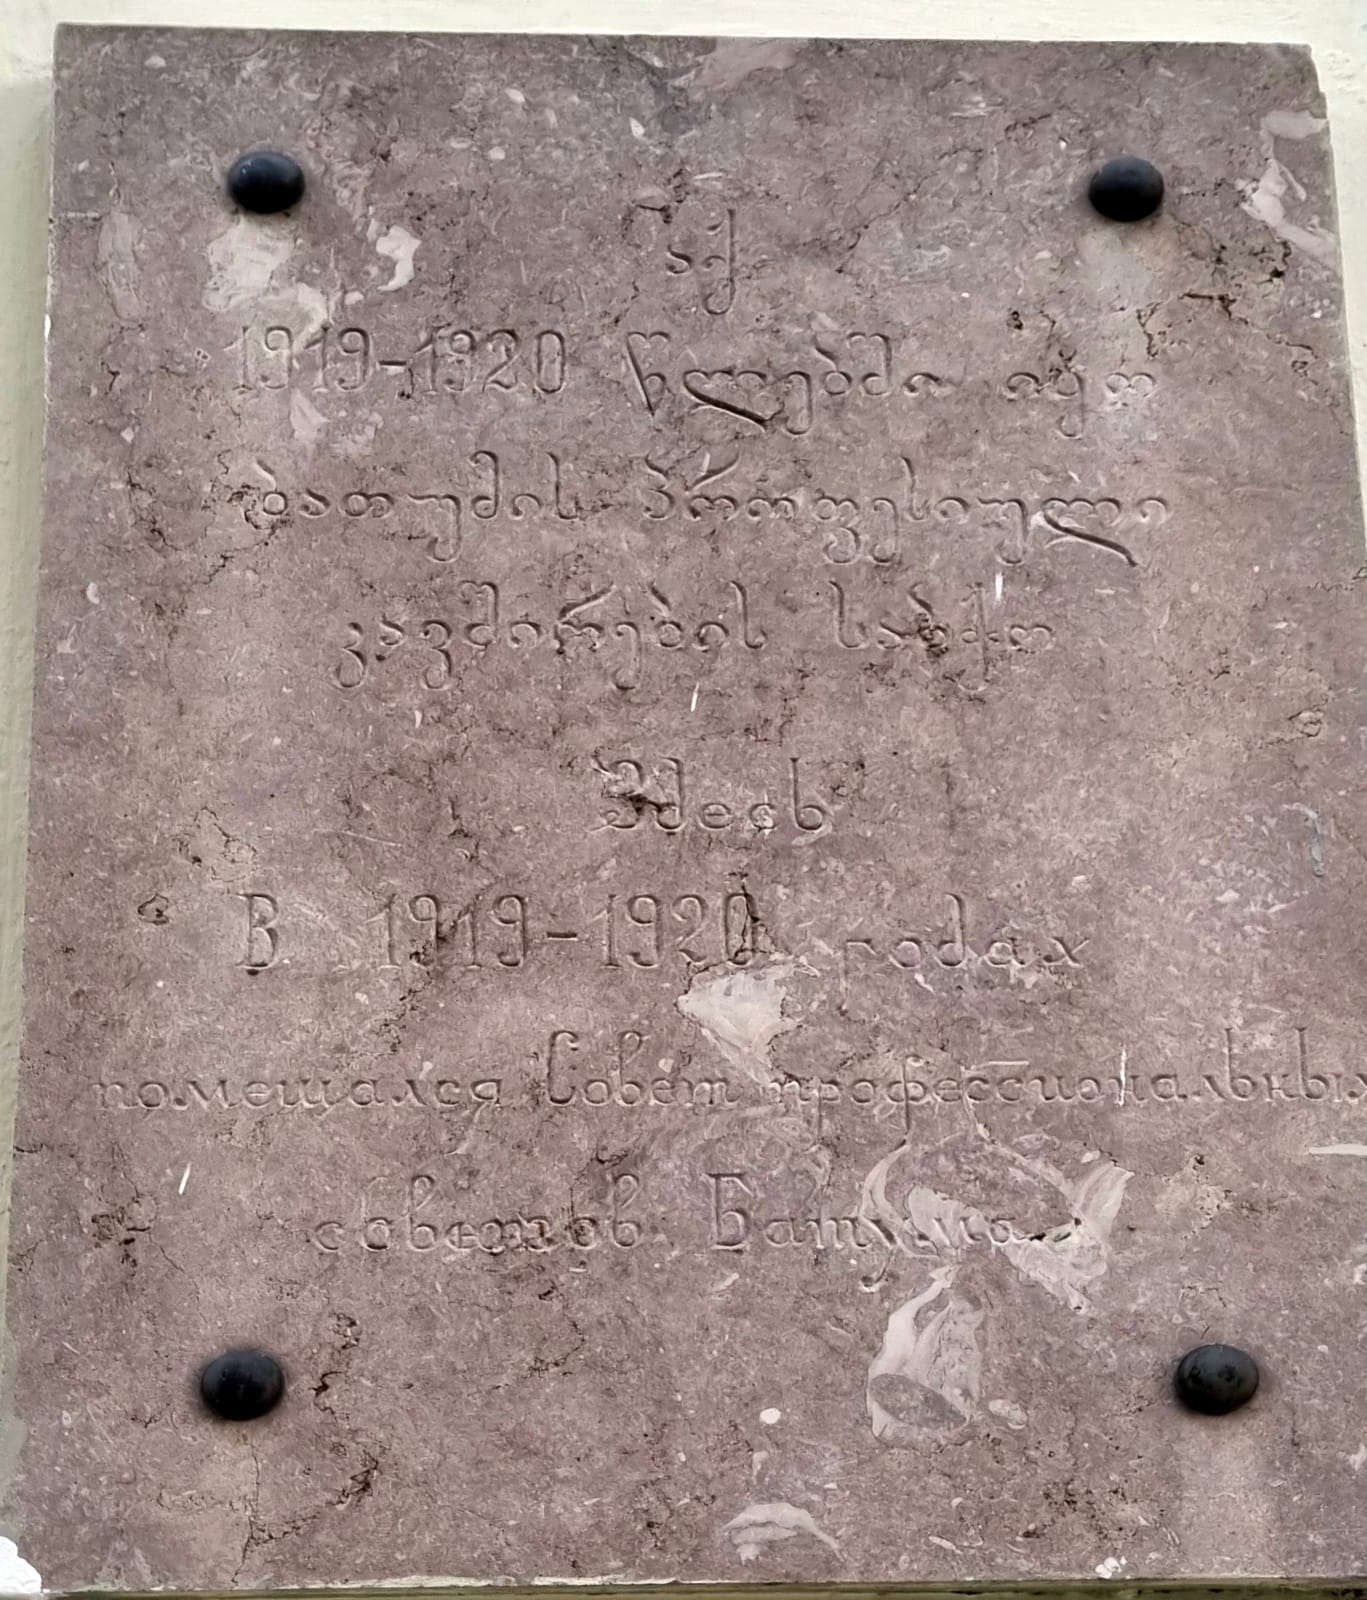 აქ
1919-1920 წლებში იყო
ბათუმის პროფესიული
კავშირების საბჭო
Здесь
В 1919-1920 годах
помещался Совет профессиональных
советов Батума